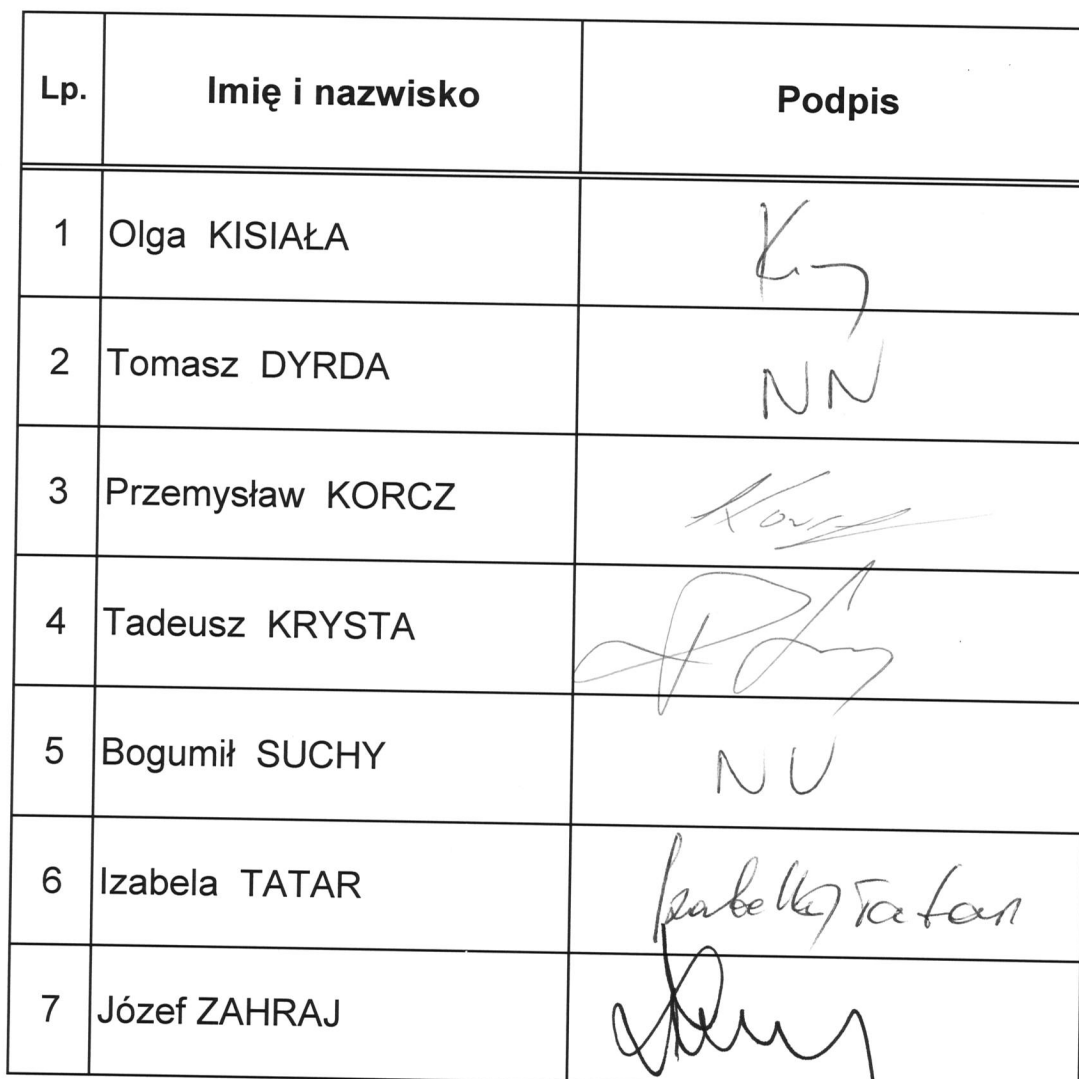 Lp. Imię i nazwisko Podpis
1 Olga KISIAŁA
2 Tomasz DYRDA NN
3 Przemysław KORCZ Korcz
4 Tadeusz KRYSTA
5 Bogumił SUCHY NU
6 Izabela TATAR Izabella Tatar
7 Józef ZAHRAJ